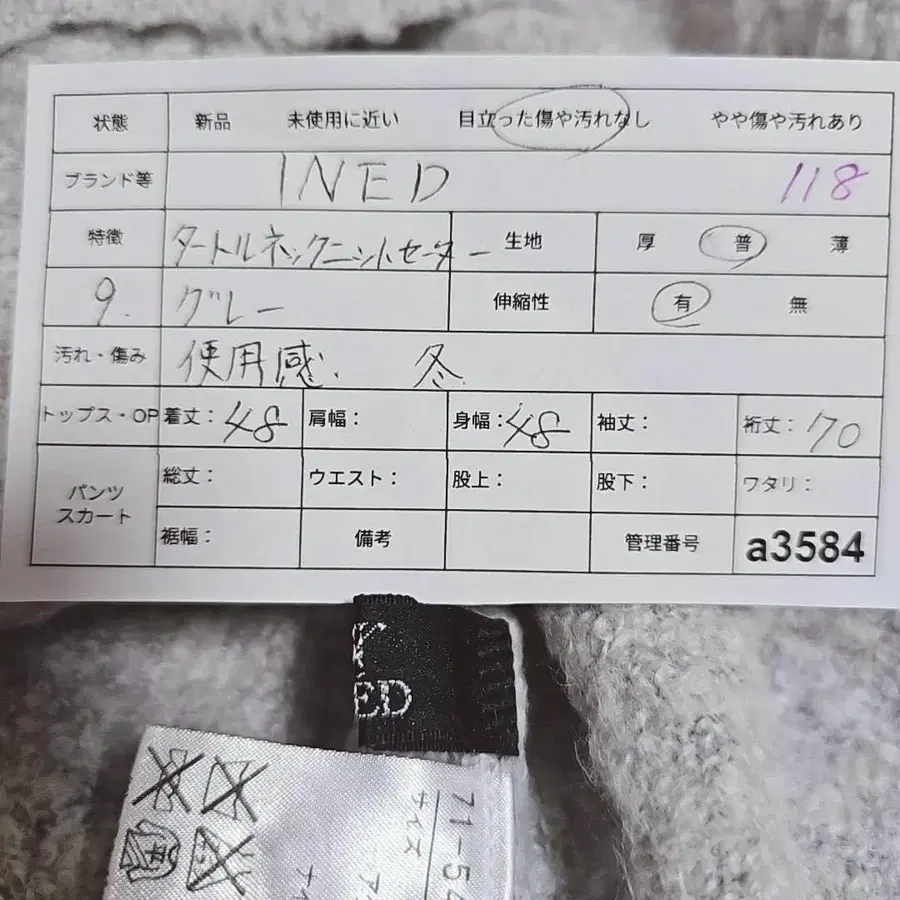 状態 新品 未使用に近い 目立った傷や汚れなし やや傷や汚れあり
ブランド等 INED 118
特徴 タートルネックニットセーター 生地 厚 普 薄
9. グレー 伸縮性 有 無
汚れ・傷み 使用感. 冬
トップス・OP 着丈：48 肩幅： 身幅：48 袖丈： 裄丈：70
パンツ スカート 総丈： ウエスト： 股上： 股下： ワタリ：
裾幅： 備考 管理番号 a3584
ED
71-54
サイズ